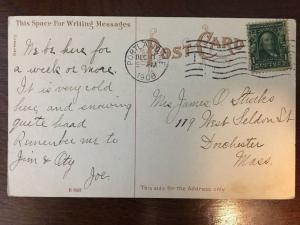 This Space For Writing Messages
Post Card
Germany
We be here for
a week or more.
It is very cold
here and snowing
quete haad
Remember me to
Jim &
Joe.
PORTLAND
DEC
1908
Mrs James O
179 West Seldon St
Dorchester
Mass.
This side for the Address only